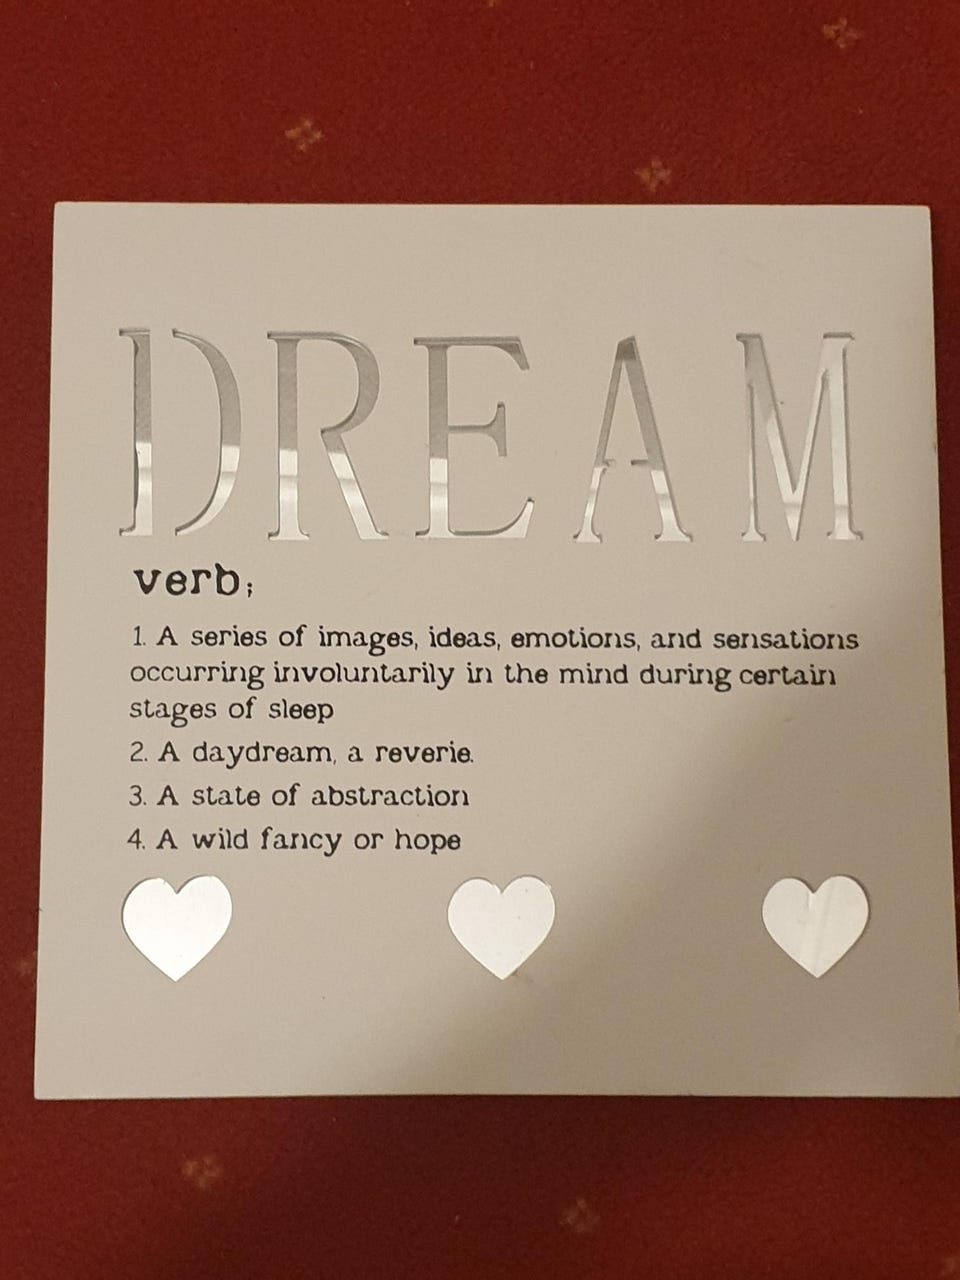 DREAM
verb;
1. A series of images, ideas, emotions, and sensations
occurring involuntarily in the mind during certain
stages of sleep
2. A daydream, a reverie.
3. A state of abstraction
4. A wild fancy or hope